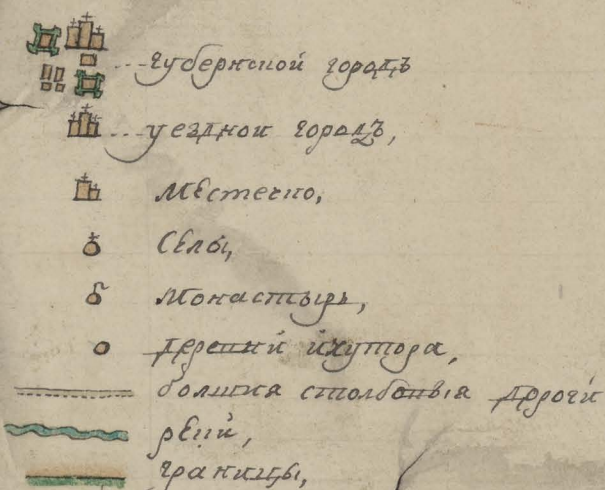 губернской городъ
уездной городъ,
местечко,
селы,
монастырь,
деревни и хутора,
болшиа столбовыа дороги
реки,
границы,